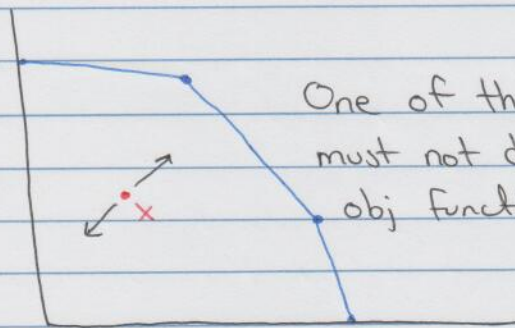 One of th
must not d
obj funct
x